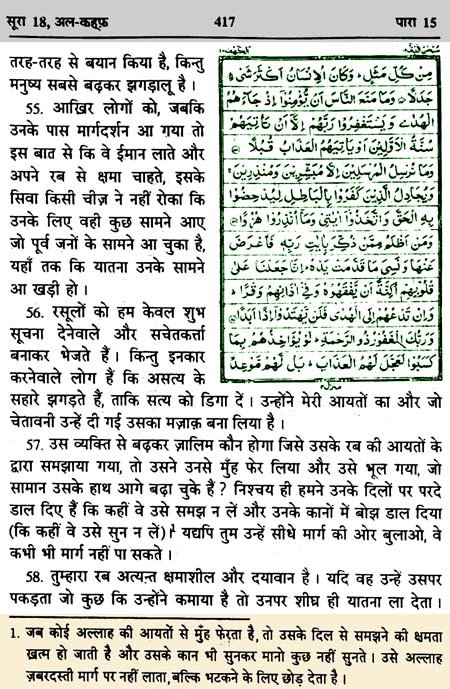 सूरा 18, अल-कह्फ़ 417 पारा 15
तरह-तरह से बयान किया है, किन्तु
मनुष्य सबसे बढ़कर झगड़ालू है।
55. आख़िर लोगों को, जबकि
उनके पास मार्गदर्शन आ गया तो
इस बात से कि वे ईमान लाते और
अपने रब से क्षमा चाहते, इसके
सिवा किसी चीज़ ने नहीं रोका कि
उनके लिए वही कुछ सामने आए
जो पूर्व जनों के सामने आ चुका है,
यहाँ तक कि यातना उनके सामने
आ खड़ी हो।
56. रसूलों को हम केवल शुभ
सूचना देनेवाले और सचेतकर्ता
बनाकर भेजते हैं। किन्तु इनकार
करनेवाले लोग हैं कि असत्य के
مِنْ كُلِّ مَثَلٍ ۚ وَكَانَ الْإِنْسَانُ أَكْثَرَ شَيْءٍ
جَدَلًا ۝ وَمَا مَنَعَ النَّاسَ أَنْ يُؤْمِنُوا إِذْ جَاءَهُمُ
الْهُدَىٰ وَيَسْتَغْفِرُوا رَبَّهُمْ إِلَّا أَنْ تَأْتِيَهُمْ
سُنَّةُ الْأَوَّلِينَ أَوْ يَأْتِيَهُمُ الْعَذَابُ قُبُلًا ۝
وَمَا نُرْسِلُ الْمُرْسَلِينَ إِلَّا مُبَشِّرِينَ وَمُنْذِرِينَ ۚ
وَيُجَادِلُ الَّذِينَ كَفَرُوا بِالْبَاطِلِ لِيُدْحِضُوا
بِهِ الْحَقَّ وَاتَّخَذُوا آيَاتِي وَمَا أُنْذِرُوا هُزُوًا ۝
وَمَنْ أَظْلَمُ مِمَّنْ ذُكِّرَ بِآيَاتِ رَبِّهِ فَأَعْرَضَ
عَنْهَا وَنَسِيَ مَا قَدَّمَتْ يَدَاهُ ۚ إِنَّا جَعَلْنَا عَلَىٰ
قُلُوبِهِمْ أَكِنَّةً أَنْ يَفْقَهُوهُ وَفِي آذَانِهِمْ وَقْرًا ۖ
وَإِنْ تَدْعُهُمْ إِلَى الْهُدَىٰ فَلَنْ يَهْتَدُوا إِذًا أَبَدًا ۝
وَرَبُّكَ الْغَفُورُ ذُو الرَّحْمَةِ ۖ لَوْ يُؤَاخِذُهُمْ بِمَا
كَسَبُوا لَعَجَّلَ لَهُمُ الْعَذَابَ ۚ بَلْ لَهُمْ مَوْعِدٌ
सहारे झगड़ते हैं, ताकि सत्य को डिगा दें। उन्होंने मेरी आयतों का और जो
चेतावनी उन्हें दी गई उसका मज़ाक़ बना लिया है।
57. उस व्यक्ति से बढ़कर ज़ालिम कौन होगा जिसे उसके रब की आयतों के
द्वारा समझाया गया, तो उसने उनसे मुँह फेर लिया और उसे भूल गया, जो
सामान उसके हाथ आगे बढ़ा चुके हैं? निश्चय ही हमने उनके दिलों पर परदे
डाल दिए हैं कि कहीं वे उसे समझ न लें और उनके कानों में बोझ डाल दिया
(कि कहीं वे उसे सुन न लें)।¹ यद्यपि तुम उन्हें सीधे मार्ग की ओर बुलाओ, वे
कभी भी मार्ग नहीं पा सकते।
58. तुम्हारा रब अत्यन्त क्षमाशील और दयावान है। यदि वह उन्हें उसपर
पकड़ता जो कुछ कि उन्होंने कमाया है तो उनपर शीघ्र ही यातना ला देता।
1. जब कोई अल्लाह की आयतों से मुँह फेरता है, तो उसके दिल से समझने की क्षमता
ख़त्म हो जाती है और उसके कान भी सुनकर मानो कुछ नहीं सुनते। उसे अल्लाह
ज़बरदस्ती मार्ग पर नहीं लाता, बल्कि भटकने के लिए छोड़ देता है।